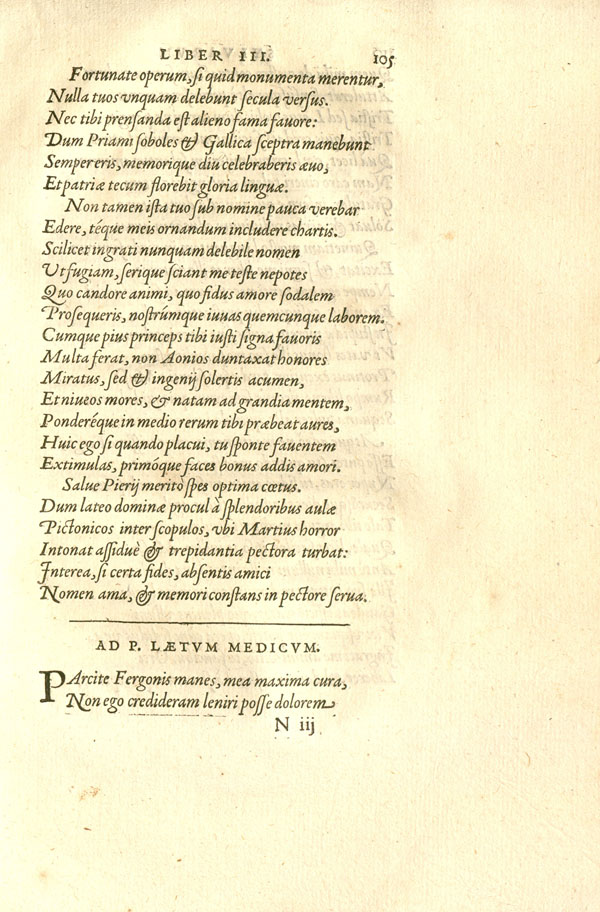 LIBER III. 105
Fortunate operum, si quid monumenta merentur,
Nulla tuos vnquam delebunt secula versus.
Nec tibi prensanda est alieno fama fauore:
Dum Priami soboles & Gallica sceptra manebunt
Semper eris, memorique diu celebraberis æuo,
Et patriæ tecum florebit gloria linguæ.
Non tamen ista tuo sub nomine pauca verebar
Edere, téque meis ornandum includere chartis.
Scilicet ingrati nunquam delebile nomen
Vt fugiam, serique sciant me teste nepotes
Quo candore animi, quo fidus amore sodalem
Prosequeris, nostrúmque iuuas quemcunque laborem.
Cumque pius princeps tibi iusti signa fauoris
Multa ferat, non Aonios duntaxat honores
Miratus, sed & ingenij solertis acumen,
Et niueos mores, & natam ad grandia mentem,
Ponderéque in medio rerum tibi præbeat aures,
Huic ego si quando placui, tu sponte fauentem
Extimulas, primóque faces bonus addis amori.
Salue Pierij meritò spes optima cœtus.
Dum lateo dominæ procul à splendoribus aulæ
Pictonicos inter scopulos, vbi Martius horror
Intonat assiduè & trepidantia pectora turbat:
Interea, si certa fides, absentis amici
Nomen ama, & memori constans in pectore serua.
AD P. LÆTVM MEDICVM.
PArcite Fergonis manes, mea maxima cura,
Non ego credideram leniri posse dolorem
N iij